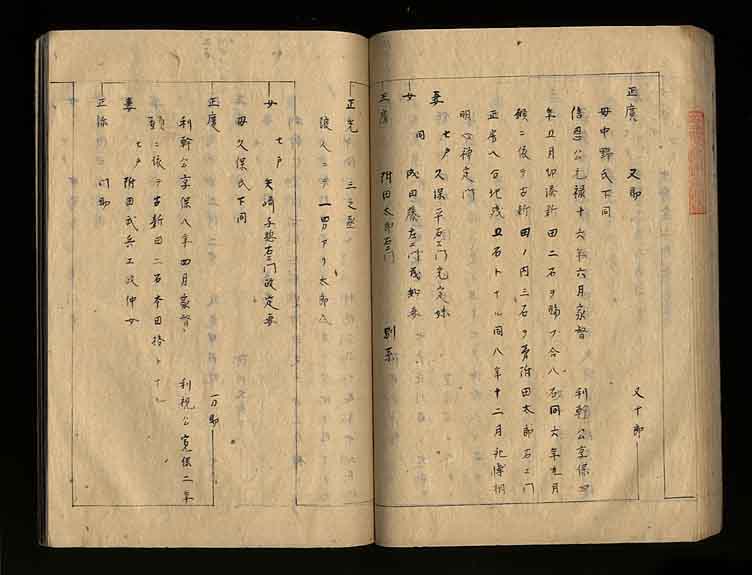 正廣 又助 又十郎
母中野氏下同
信恩公元禄十六年六月家督 利幹公享保
年五月切添新田二石ヲ賜フ合八石同六年七月
願ニ依テ古新田ノ内三石ヲ男附田太郎右エ門
正考ヘ分地残五石トナル同八年十二月死
明心禅定門
妻 七戸久保平右エ門光定妹
女 同 成田藤左エ門茂知妻
正 附田太郎右エ門 別系
正光 三之丞
浪人ニテ一男アリ太郎
女 七戸 矢 右エ門政定妻
母久保氏下同
正慶 万助
利幹公享保八年四月家督 利視公寛保二年
願ニ依テ古新田二石本田替トナル
妻 七戸附田武兵エ政仲女
正 門助